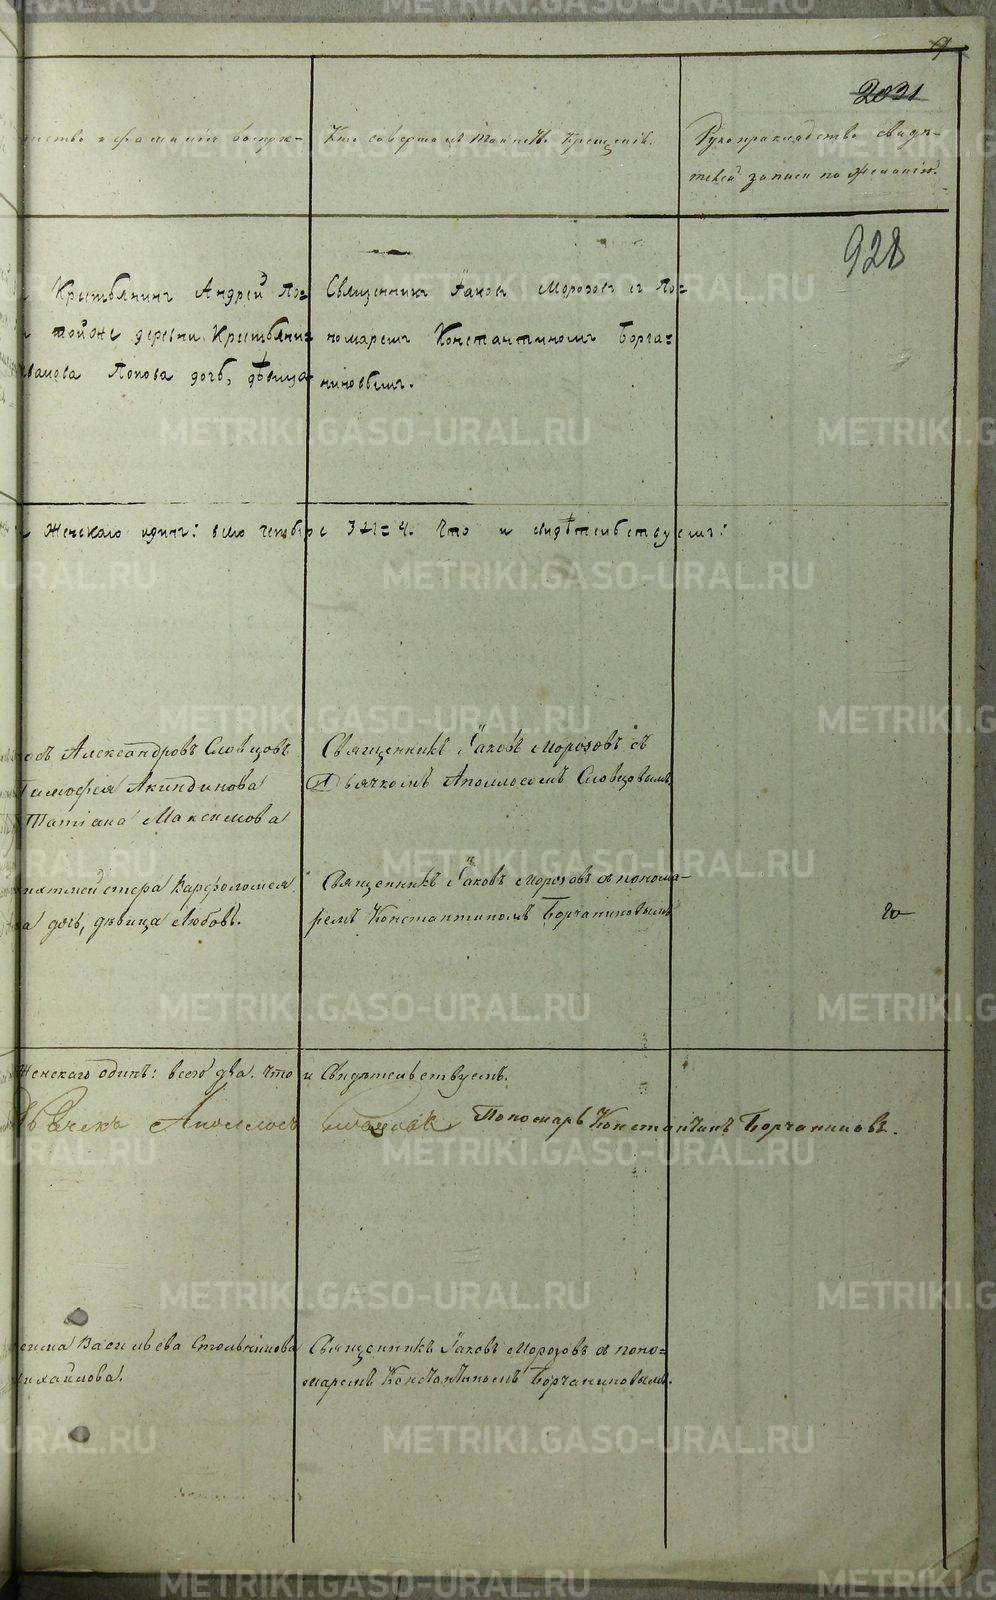 2031
чество и фамилія воспрі-
Кто совершалъ таинство крещенія.
Рукоприкладство свидѣ-
телей записи по желанію.
928
Крестьянинъ Андрей По=
тойже деревни Крестьяни=
Иванова Попова дочь, дѣвица
Священникъ Іаковъ Морозовъ съ По=
номаремъ Константиномъ Борча=
ниновымъ.
Женскаго одинъ: всего четыре 3+1=4. Что и свидѣтельствуемъ:
Александровъ Словцовъ
Тимофея Акиндинова
Татіана Максимова
Священникъ Іаковъ Морозовъ съ
Дьячкомъ Аполлосомъ Словцовымъ
Варфоломея
дочь, дѣвица Любовь.
Священникъ Іаковъ Морозовъ съ понома-
ремъ Константиномъ Борчаниновымъ
Женскаго одинъ: всего два. Что и Свидѣтельствуемъ.
Дьячекъ Аполлосъ Словцовъ Пономарь Константинъ Борчаниновъ.
Васильева Стольникова
Михайлова.
Священникъ Іаковъ Морозовъ съ поно=
маремъ Константиномъ Борчаниновымъ.
METRIKI.GASO-URAL.RU